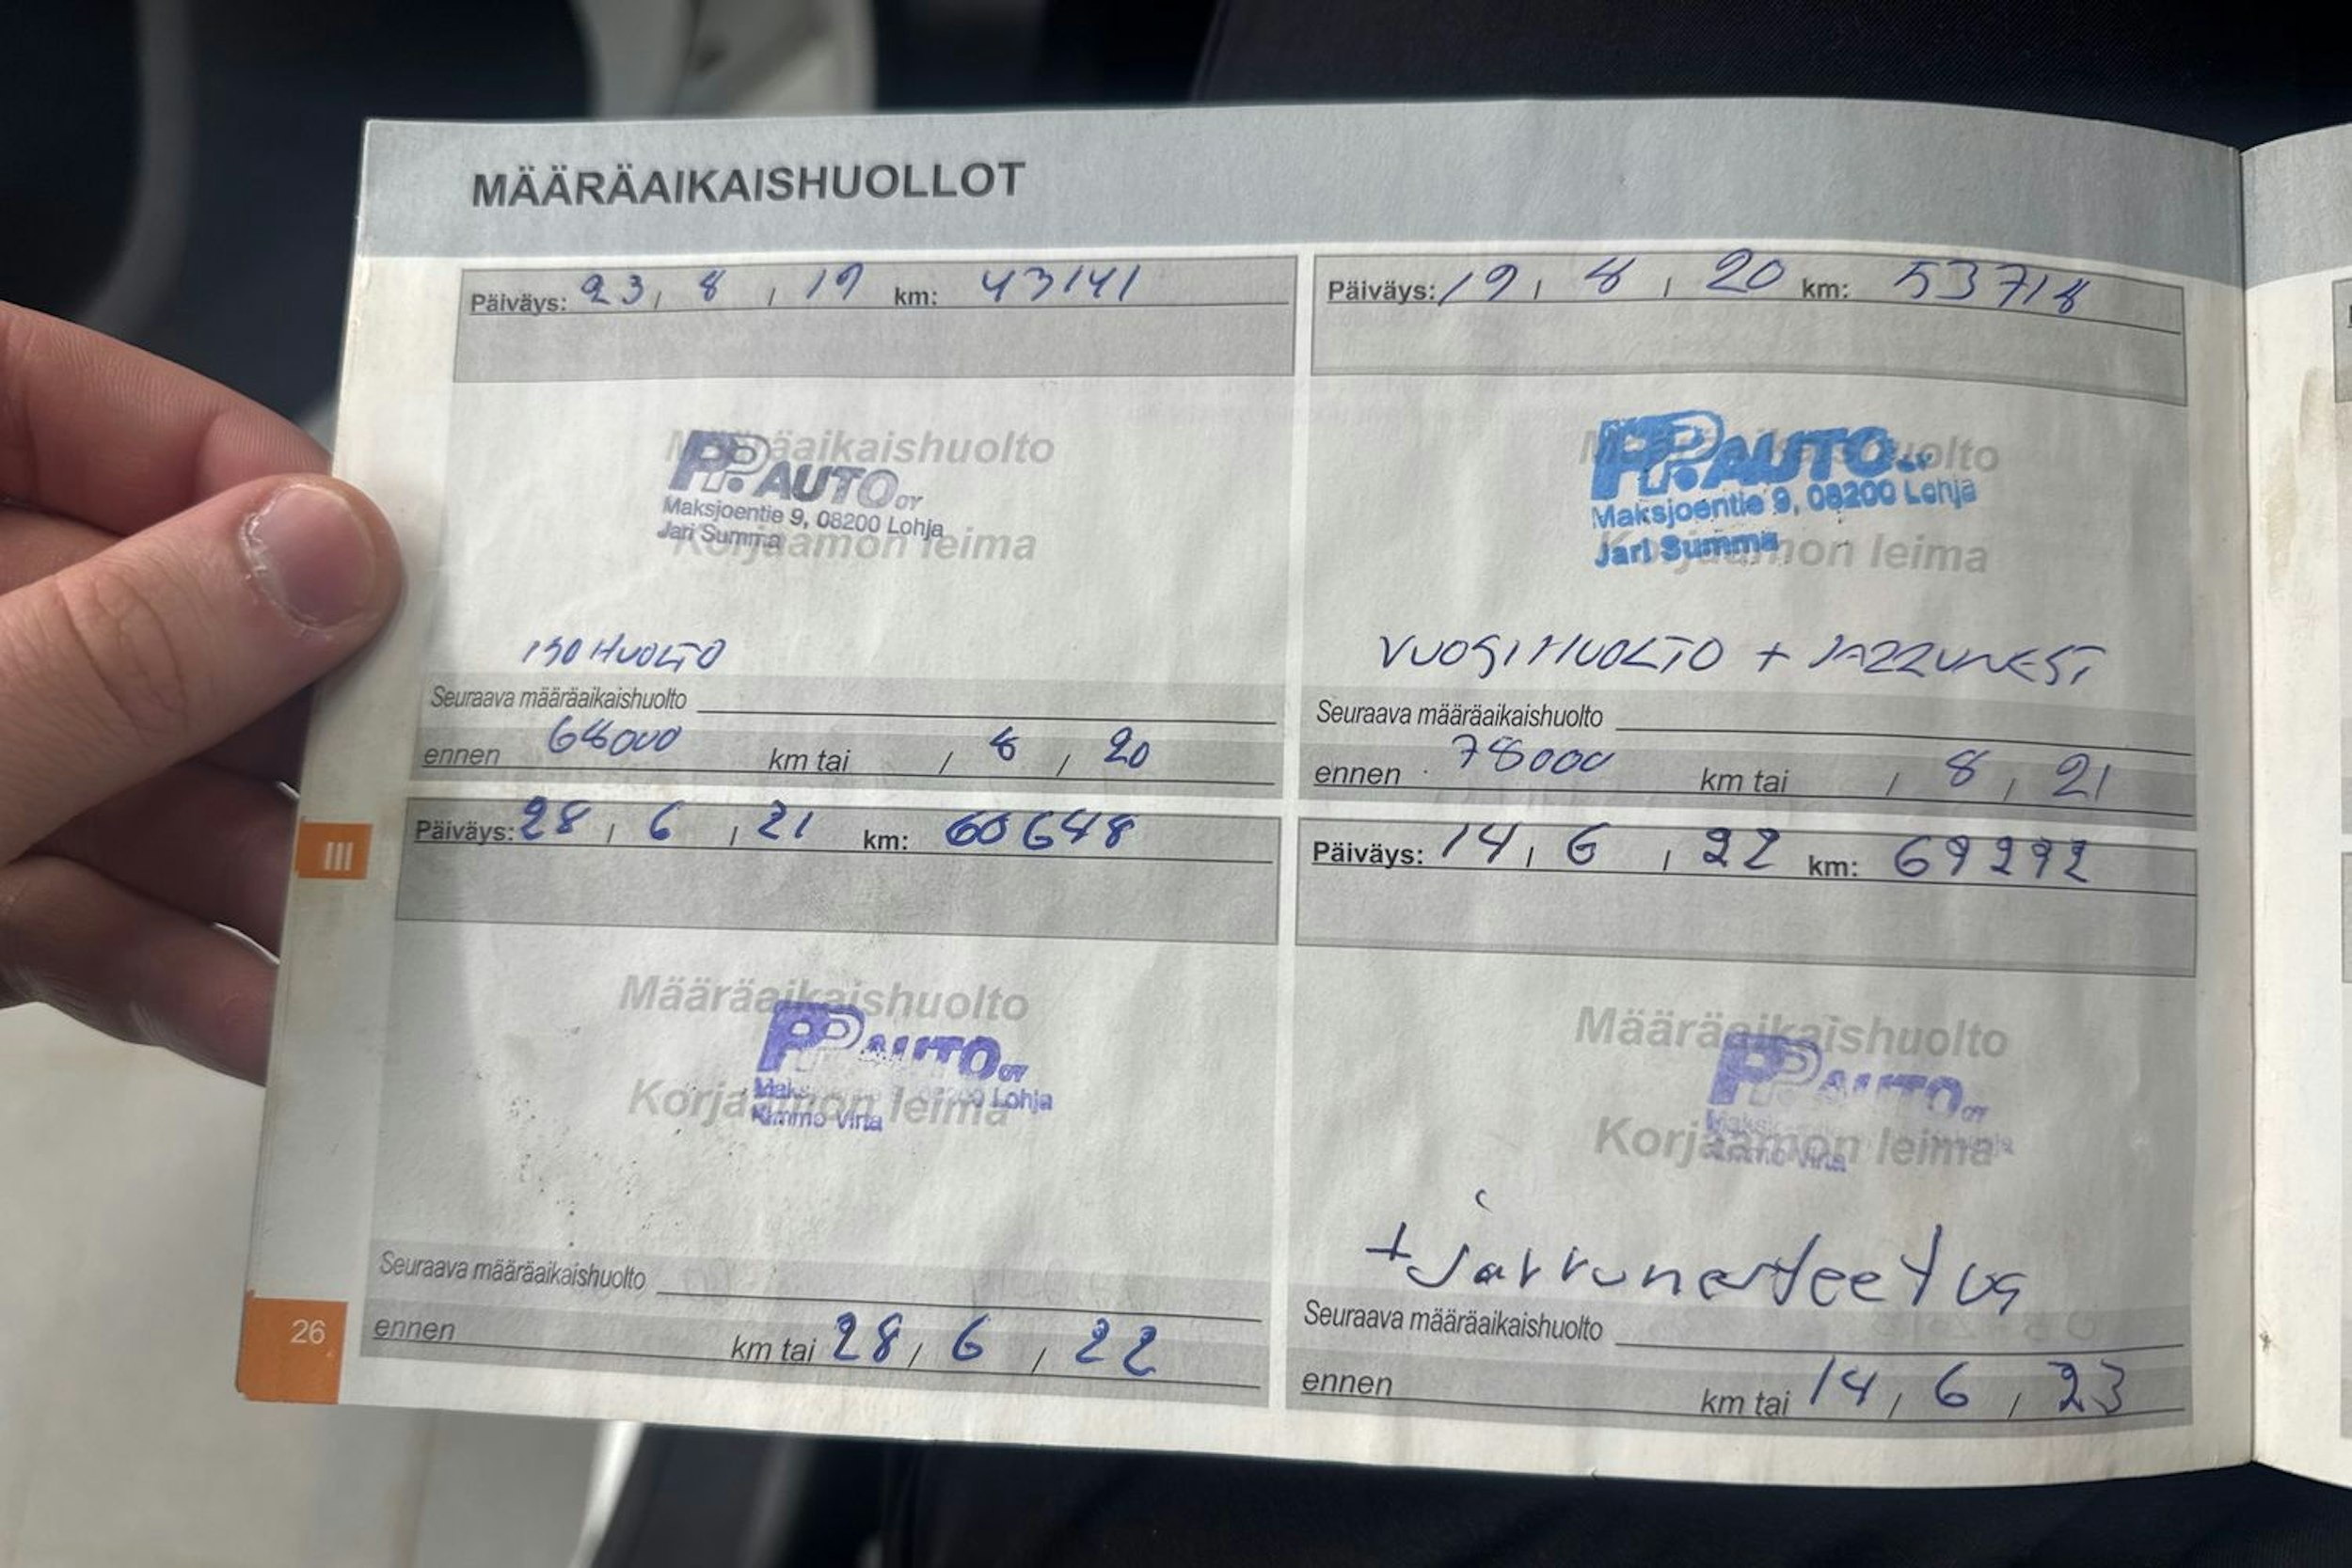 MÄÄRÄAIKAISHUOLLOT
Päiväys: 23 / 8 / 19 km: 43141
Määräaikaishuolto
PP. AUTO OY
Maksjoentie 9, 08200 Lohja
Jari Summa
Korjaamon leima
ISO HUOLTO
Seuraava määräaikaishuolto
ennen 68000 km tai / 8 / 20
Päiväys: 19 / 8 / 20 km: 53718
Määräaikaishuolto
PP. AUTO OY
Maksjoentie 9, 08200 Lohja
Jari Summa
Korjaamon leima
VUOSIHUOLTO + JARRUNEST
Seuraava määräaikaishuolto
ennen 78000 km tai / 8 / 21
Päiväys: 28 / 6 / 21 km: 60648
Määräaikaishuolto
PP AUTO OY
Lohja
Kimmo Virta
Korjaamon leima
Seuraava määräaikaishuolto
ennen km tai 28 / 6 / 22
Päiväys: 14 / 6 / 22 km: 69292
Määräaikaishuolto
PP AUTO OY
Kimmo Virta
Korjaamon leima
+ jarrunesteet us
Seuraava määräaikaishuolto
ennen km tai 14 / 6 / 23
III
26